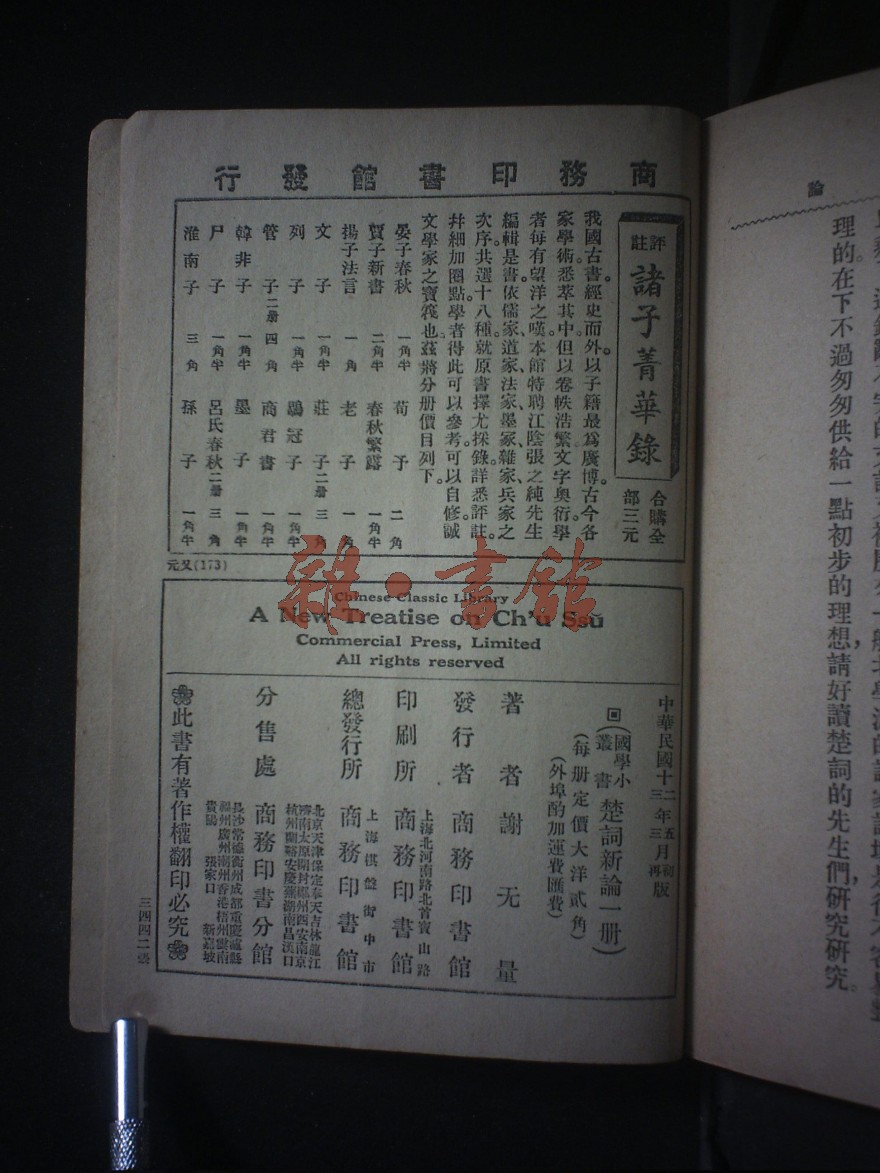 論
理的。在下不過匆匆供給一點初步的理想，請好讀楚詞的先生們，研究研究。
商務印書館發行
評註
諸子菁華錄
合購全部三元
我國古書。經史而外。以子籍最爲廣博。古今各
家學術。悉萃其中。但以卷帙浩繁。文字奧衍。學
者每有望洋之嘆。本館特聘江陰張之純先生
編輯是書。依儒家、道家、法家、墨家、雜家、兵家之
次序。共選十八種。就原書擇尤採錄。詳悉評註。
幷細加圈點。學者得此。可以參考。可以自修。誠
文學家之寶筏也。茲將分册價目列下。
晏子春秋 一角半 荀子 二角
賈子新書 二角半 春秋繁露 一角半
揚子法言 一角 老子 一角半
文子 一角半 莊子二册 三角
列子 一角半 鶡冠子 一角半
管子二册 四角 商君書 一角半
韓非子 一角半 墨子 一角半
尸子 一角半 呂氏春秋二册 三角
淮南子 三角 孫子 一角半
元又(173)
Chinese Classic Library
A New Treatise on Ch'u Ssŭ
Commercial Press, Limited
All rights reserved
中華民國十二年五月初版
三年三月再版
(國學小叢書楚詞新論一册)
(每册定價大洋貳角)
(外埠酌加運費匯費)
著者 謝无量
發行者 商務印書館
上海北河南路北首寶山路
印刷所 商務印書館
上海棋盤街中市
總發行所 商務印書館
北京天津保定奉天吉林龍江
濟南太原開封鄭州西安南京
杭州蘭谿安慶蕪湖南昌漢口
分售處 商務印書分館
長沙常德衡州成都重慶瀘縣
福州廣州潮州香港梧州雲南
貴陽 張家口 新嘉坡
此書有著作權翻印必究
三四四二張
雜·書館